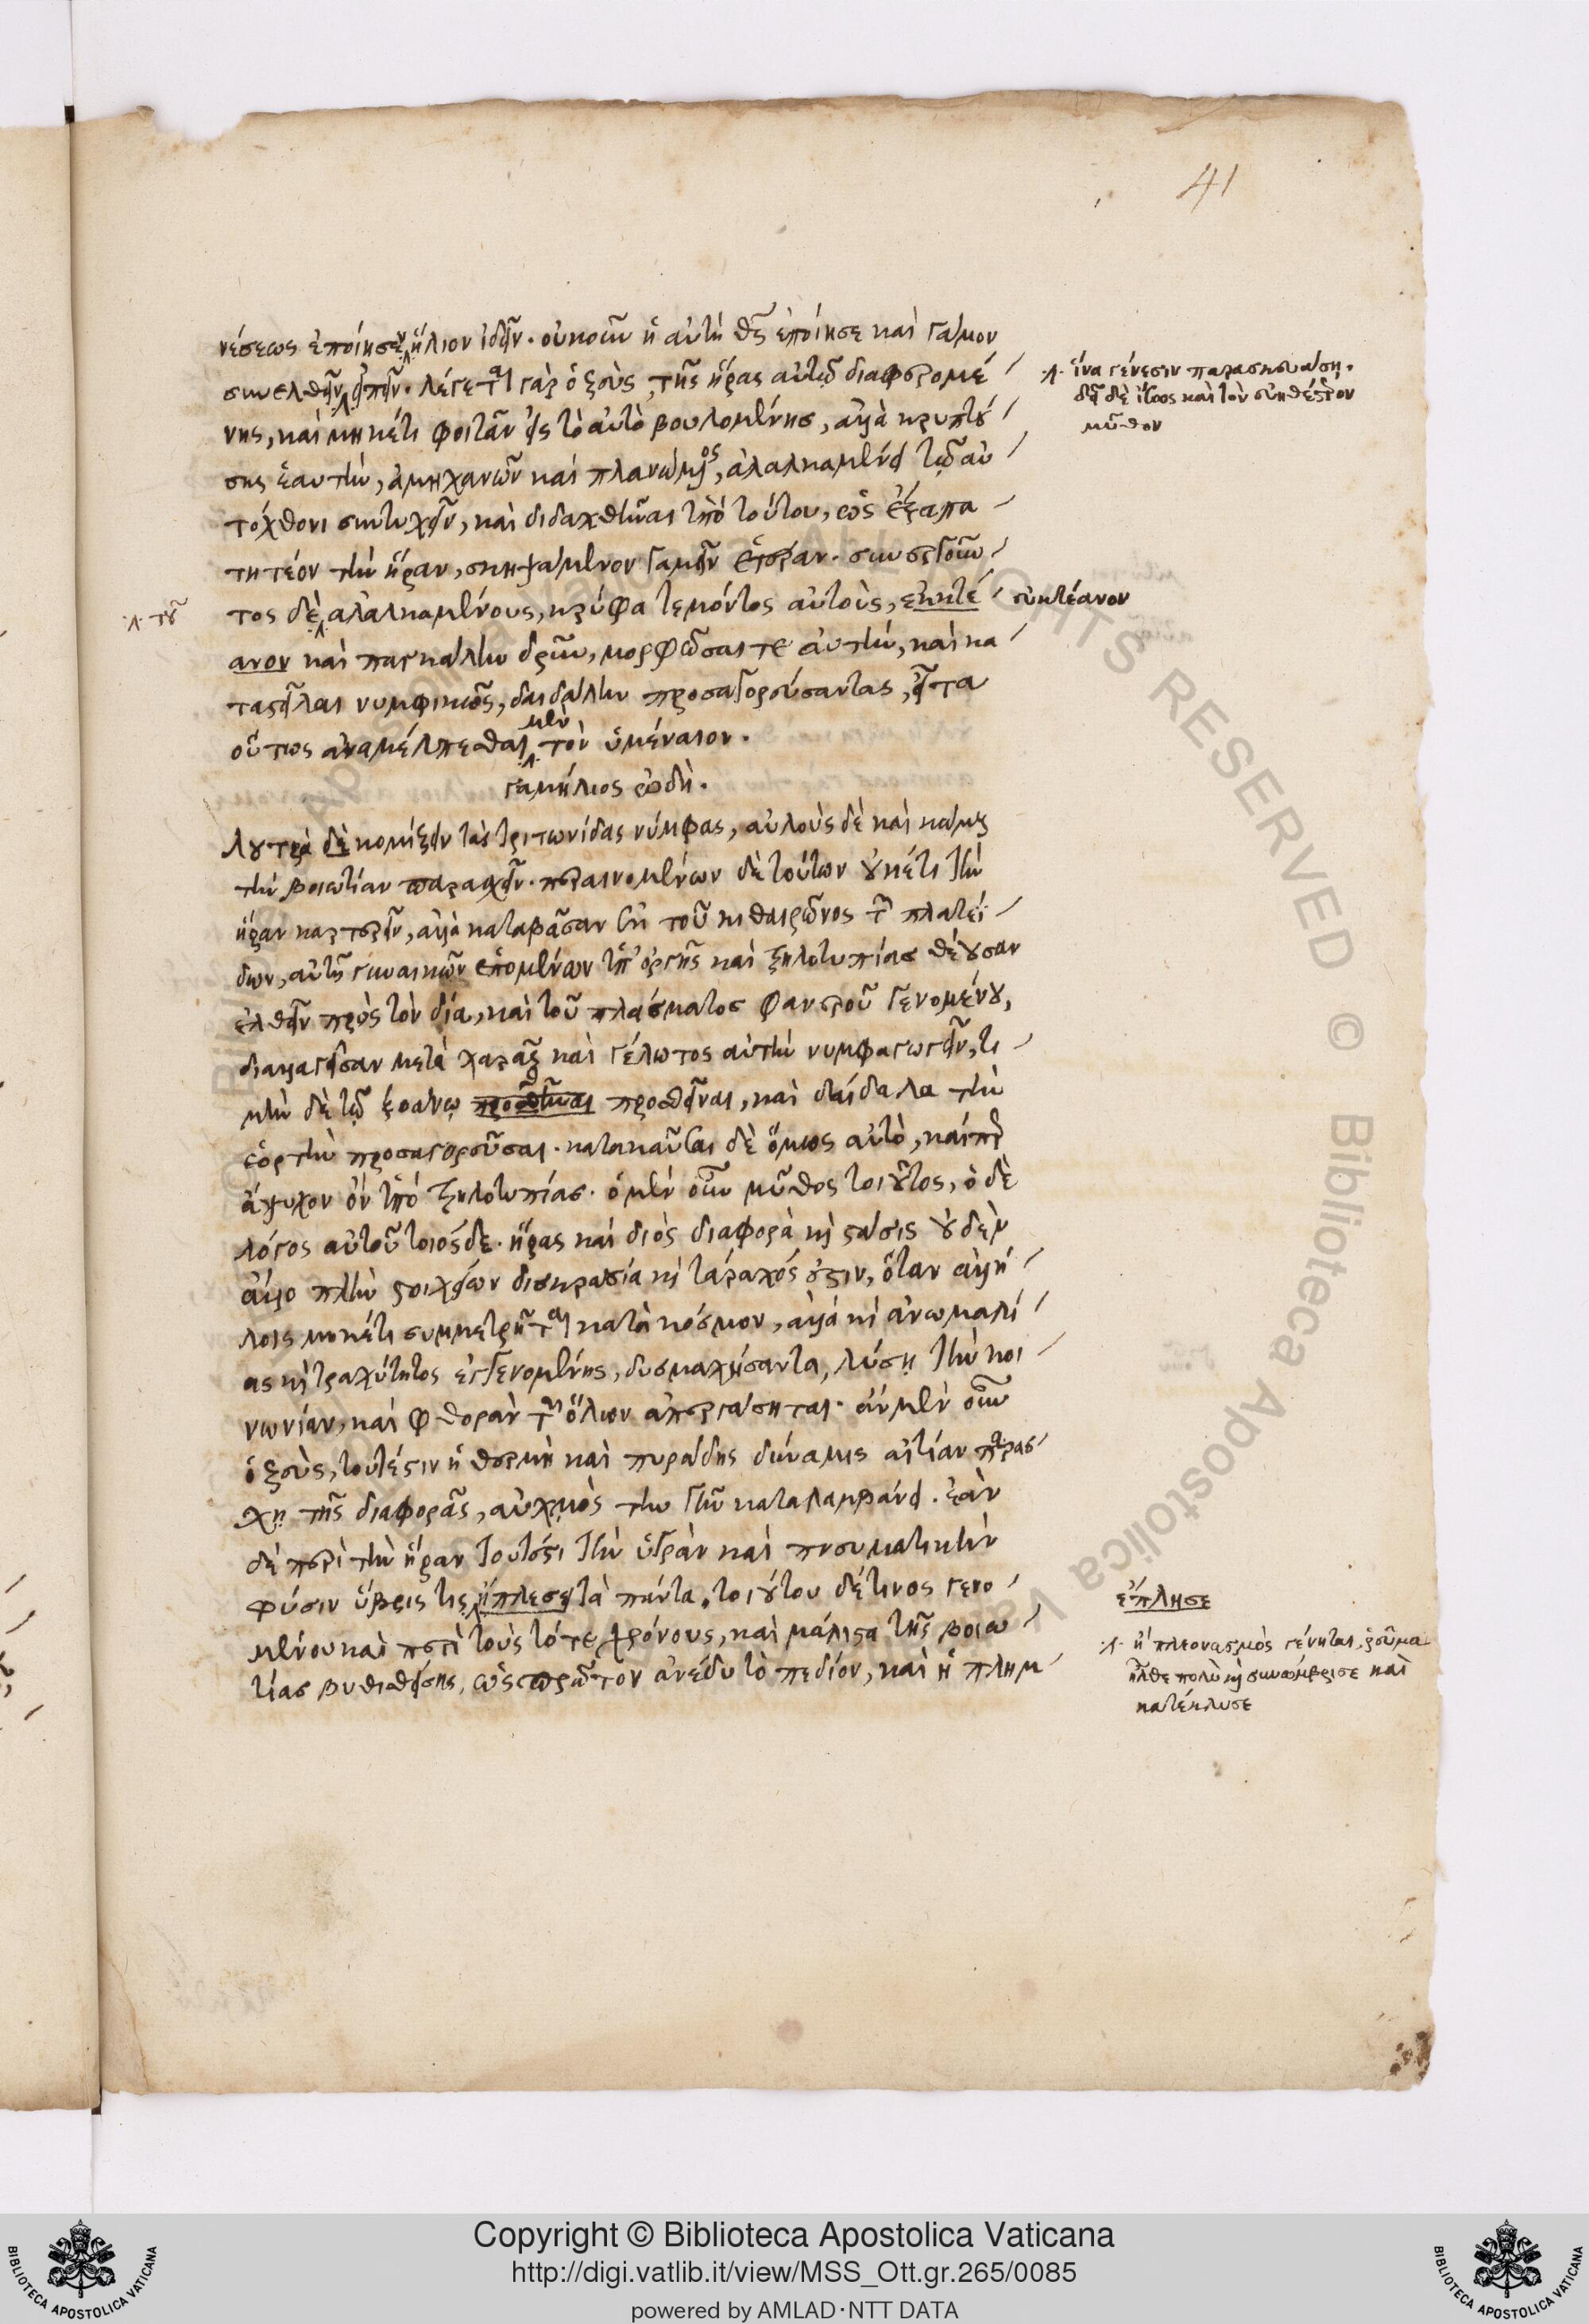 41
νέσεως ἐποίησεν ἥλιον ἰδεῖν. οὐκοῦν ἡ αὐτὴ θεὸς ἐποίησε καὶ γάμον
συνελθεῖν εἰπεῖν. λέγεται γὰρ ὁ ζεὺς, τῆς ἥρας αὐτῷ διαφερομέ
νης, καὶ μηκέτι φοιτᾶν εἰς τὸ αὐτὸ βουλομένης, ἀλλὰ κρυπτού
σης ἑαυτὴν, ἀμηχανῶν καὶ πλανώμενος, ἀλαλκομένει τῷ αὐ
τόχθονι συντυχεῖν, καὶ διδαχθῆναι ὑπὸ τούτου, ὡς ἐξαπα
τητέον τὴν ἥραν, σκηψάμενον γαμεῖν ἑτέραν. συνεργοῦν
τος δὲ ἀλαλκομένους, κρύφα τεμόντας αὐτοὺς, εὐκτέ
ανον καὶ παγκάλην δρῦν, μορφῶσαί τε αὐτὴν, καὶ κα
ταστεῖλαι νυμφικῶς, δαιδάλην προσαγορεύσαντας, εἶτα
οὕτως ἀναμέλπεσθαι μὲν τὸν ὑμέναιον.
γαμήλιος ᾠδή.
λουτρὰ δὲ κομίζειν τὰς τριτωνίδας νύμφας, αὐλοὺς δὲ καὶ κώμους
τὴν βοιωτίαν παρασχεῖν. περαινομένων δὲ τούτων οὐκέτι τὴν
ἥραν καρτερεῖν, ἀλλὰ καταβᾶσαν ἐκ τοῦ κιθαιρῶνος τῶν πλατεί
δων, αὐτῇ γυναικῶν ἑπομένων ὑπ' ὀργῆς καὶ ζηλοτυπίας θέουσαν
ἐλθεῖν πρὸς τὸν δία, καὶ τοῦ πλάσματος φανεροῦ γενομένου,
διαλλαγεῖσαν μετὰ χαρᾶς καὶ γέλωτος αὐτὴν νυμφαγωγεῖν, τι
μὴν δὲ τῷ ξοάνῳ προσθεῖναι, καὶ δαίδαλα τὴν
ἑορτὴν προσαγορεῦσαι. κατακαῦσαι δὲ ὅμως αὐτὸ, καίπερ
ἄψυχον ὂν ὑπὸ ζηλοτυπίας. ὁ μὲν οὖν μῦθος τοιοῦτος, ὁ δὲ
λόγος αὐτοῦ τοιόσδε. ἥρας καὶ διὸς διαφορὰ καὶ στάσις οὐδὲν
ἄλλο πλὴν στοιχείων δυσκρασία καὶ τάραχός ἐστιν, ὅταν ἀλλή
λοις μηκέτι συμμετρῆται κατὰ κόσμον, ἀλλὰ καὶ ἀνωμαλί
ας καὶ τραχύτητος ἐγγενομένης, δυσμαχήσαντα, λύσῃ τὴν κοι
νωνίαν, καὶ φθορὰν τῶν ὅλων ἀπεργάσηται. ἂν μὲν οὖν
ὁ ζεὺς, τουτέστιν ἡ θερμὴ καὶ πυρώδης δύναμις αἰτίαν παράσ
χῃ τῆς διαφορᾶς, αὐχμὸς τὴν γῆν καταλαμβάνει. ἐὰν
δὲ περὶ τὴν ἥραν τουτέστι τὴν ὑγρὰν καὶ πνευματικὴν
φύσιν ὕβρις τις, ἔπλεσε τὰ πάντα. τοιούτου δέ τινος γενο
μένου καὶ περὶ τοὺς τότε χρόνους, καὶ μάλιστα τῆς βοιω
τίας βυθισθείσης, ὡς πρῶτον ἀνέδυ τὸ πεδίον, καὶ ἡ πλημ
ἵνα γένεσιν παρασκευάσῃ.
δεῖ δὲ ἴσως καὶ τὸν εὐηθέστερον
μῦθον
τοῦ
εὐκτέανον
ἔπλησε
ἢ πλεονασμὸς γένηται, ῥεῦμα
ἦλθε πολὺ καὶ συνώμβρισε καὶ
κατέκλυσε
Copyright © Biblioteca Apostolica Vaticana
http://digi.vatlib.it/view/MSS_Ott.gr.265/0085
powered by AMLAD·NTT DATA